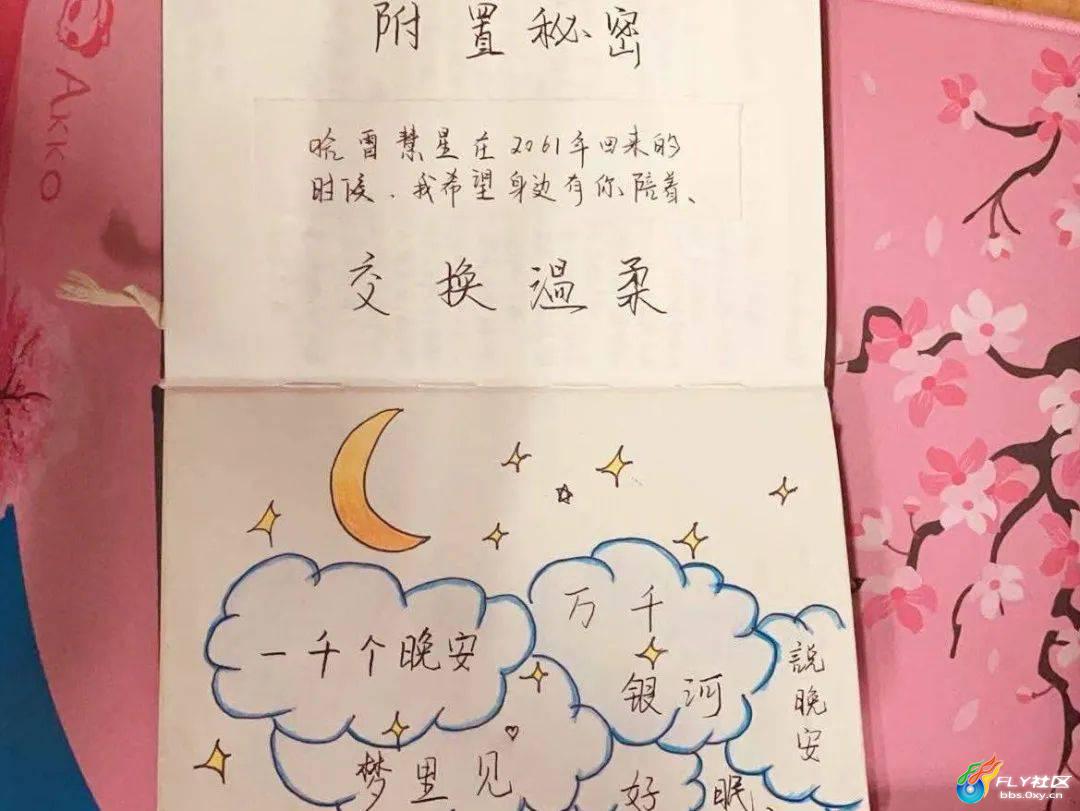 附置秘密
哈雷慧星在2061年回来的
时候、我希望身边有你陪着、
交换温柔
一千个晚安
万千
银河
説晚安
梦里见
好眠、
AKKO
FLY社区
bbs.0xy.cn